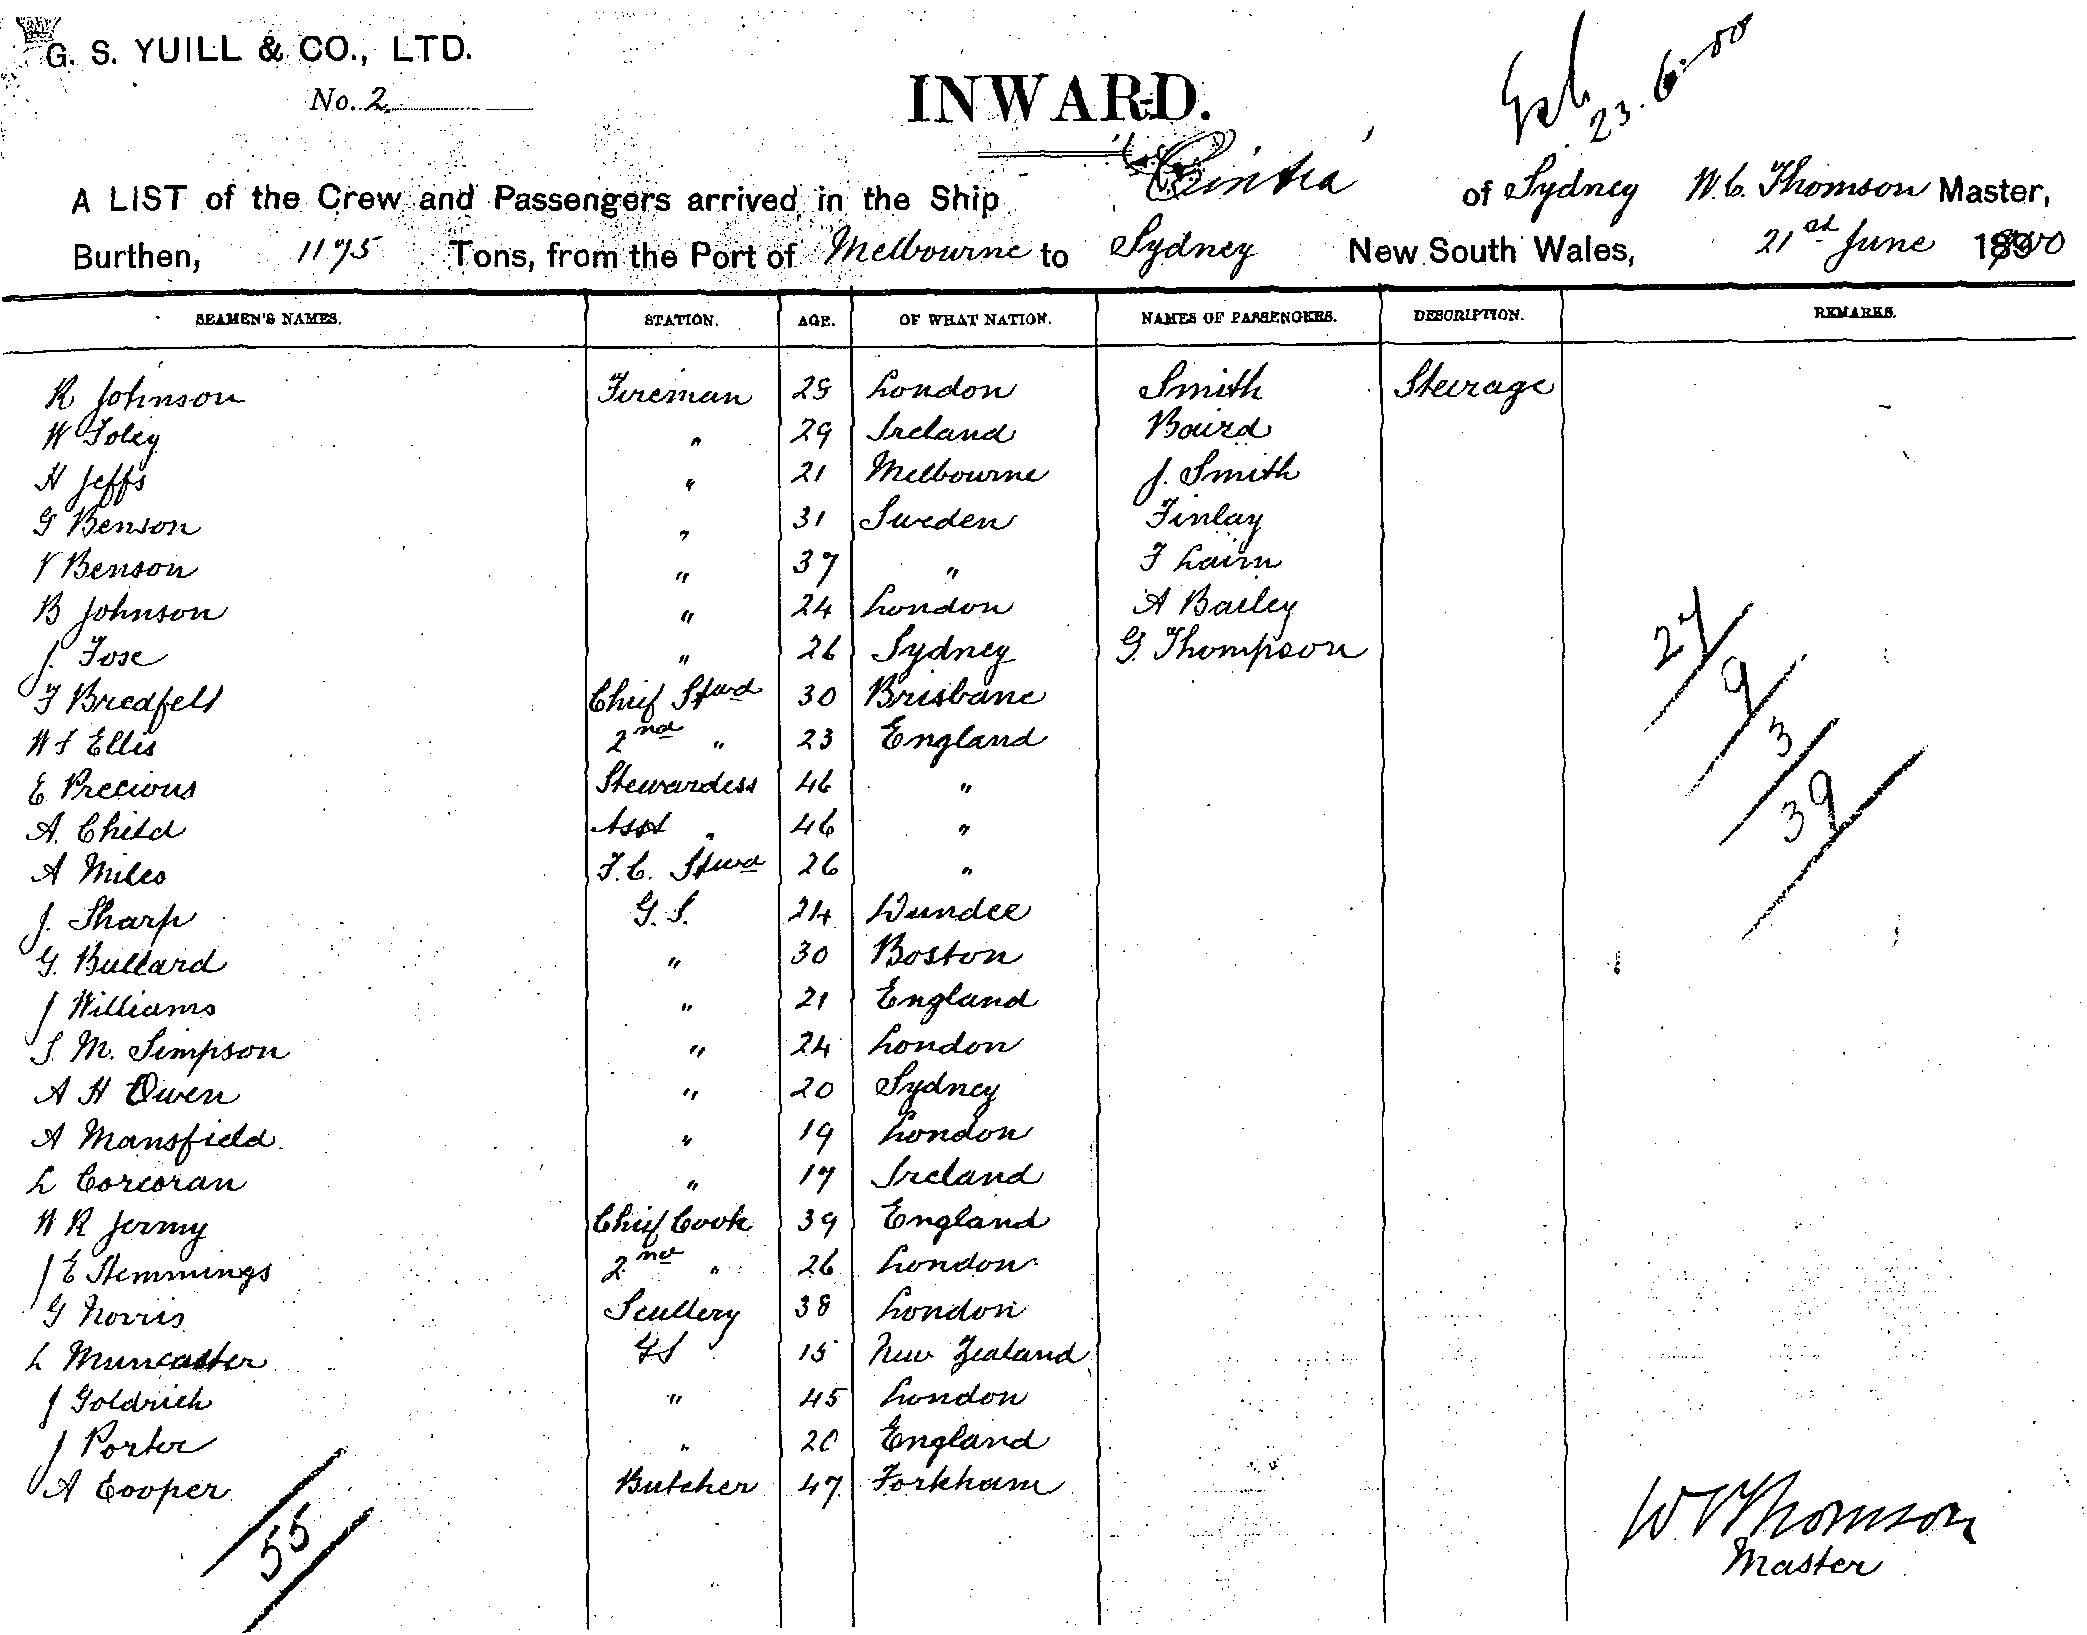 G. S. YUILL & CO., LTD.
No. 2
INWARD.
23.6.00
A LIST of the Crew and Passengers arrived in the Ship Cintra of Sydney W. C. Thomson Master,
Burthen, 1175 Tons, from the Port of Melbourne to Sydney New South Wales, 21st June 1900
SEAMEN'S NAMES. STATION. AGE. OF WHAT NATION. NAMES OF PASSENGERS. DESCRIPTION. REMARKS.
R Johnson Fireman 28 London Smith Steerage
W Foley " 29 Ireland Baird
H Jeffs " 21 Melbourne J. Smith
G Benson " 31 Sweden Finlay
V Benson " 37 " F
B Johnson " 24 London A Bailey
J. Fose " 26 Sydney G. Thompson
F Bredfelt Chief Stwd 30 Brisbane
W S Ellis 2nd " 23 England
E Precious Stewardess 46 "
A. Child Asst " 46 "
A Miles F.C. Stwd 26 "
J. Sharp G.S. 24 Dundee
G. Bullard " 30 Boston
J Williams " 21 England
S. M. Simpson " 24 London
A H Owen " 20 Sydney
A Mansfield " 19 London
L Corcoran " 17 Ireland
W R Jermy Chief Cook 39 England
J E Hemmings 2nd " 26 London
G Norris Scullery 38 London
L Muncaster GS 15 New Zealand
J Goldrich " 45 London
J Porter " 20 England
A Cooper Butcher 47 Forkham
27
9
3
39
55
W C Thomson
Master